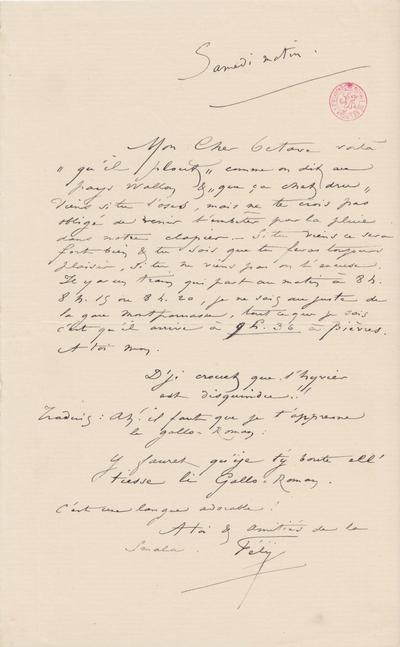 Samedi matin.
Mon Cher Octave voilà
„ qu'il plout „ comme on dit au
pays wallon & „ que ça chet dru „
Viens si tu l'oses, mais ne te crois pas
obligé de venir t'embêter par la pluie
dans notre clapier – Si tu viens ce sera
fort bien & tu sais que tu feras toujours
plaisir, si tu ne viens pas on t'excuse.
Il y a un train qui part au matin à 8 h.
8 h. 15 ou 8 h. 20, je ne sais au juste de
la gare Montparnasse, tout ce que je sais
c'est qu'il arrive à 9 h. 36 à Bièvres.
A toi mon
D'ji crouet que l'hyvier
est disquindu !!
Traduis : Ah ! il faut que je t'apprenne
le gallo-Roman :
Y fauret qu'ije t'y boute ell'
tiesse li Gallo-Roman.
C'est une langue adorable !
A toi & amitiés de la
Smala. Fély